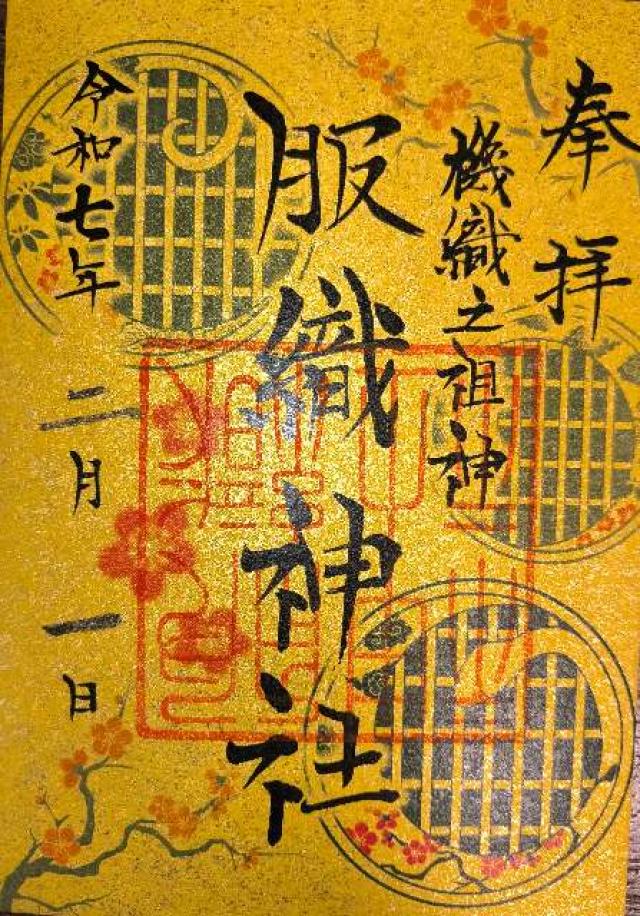 奉拝
機織之祖神
服織神社
令和七年
二月一日